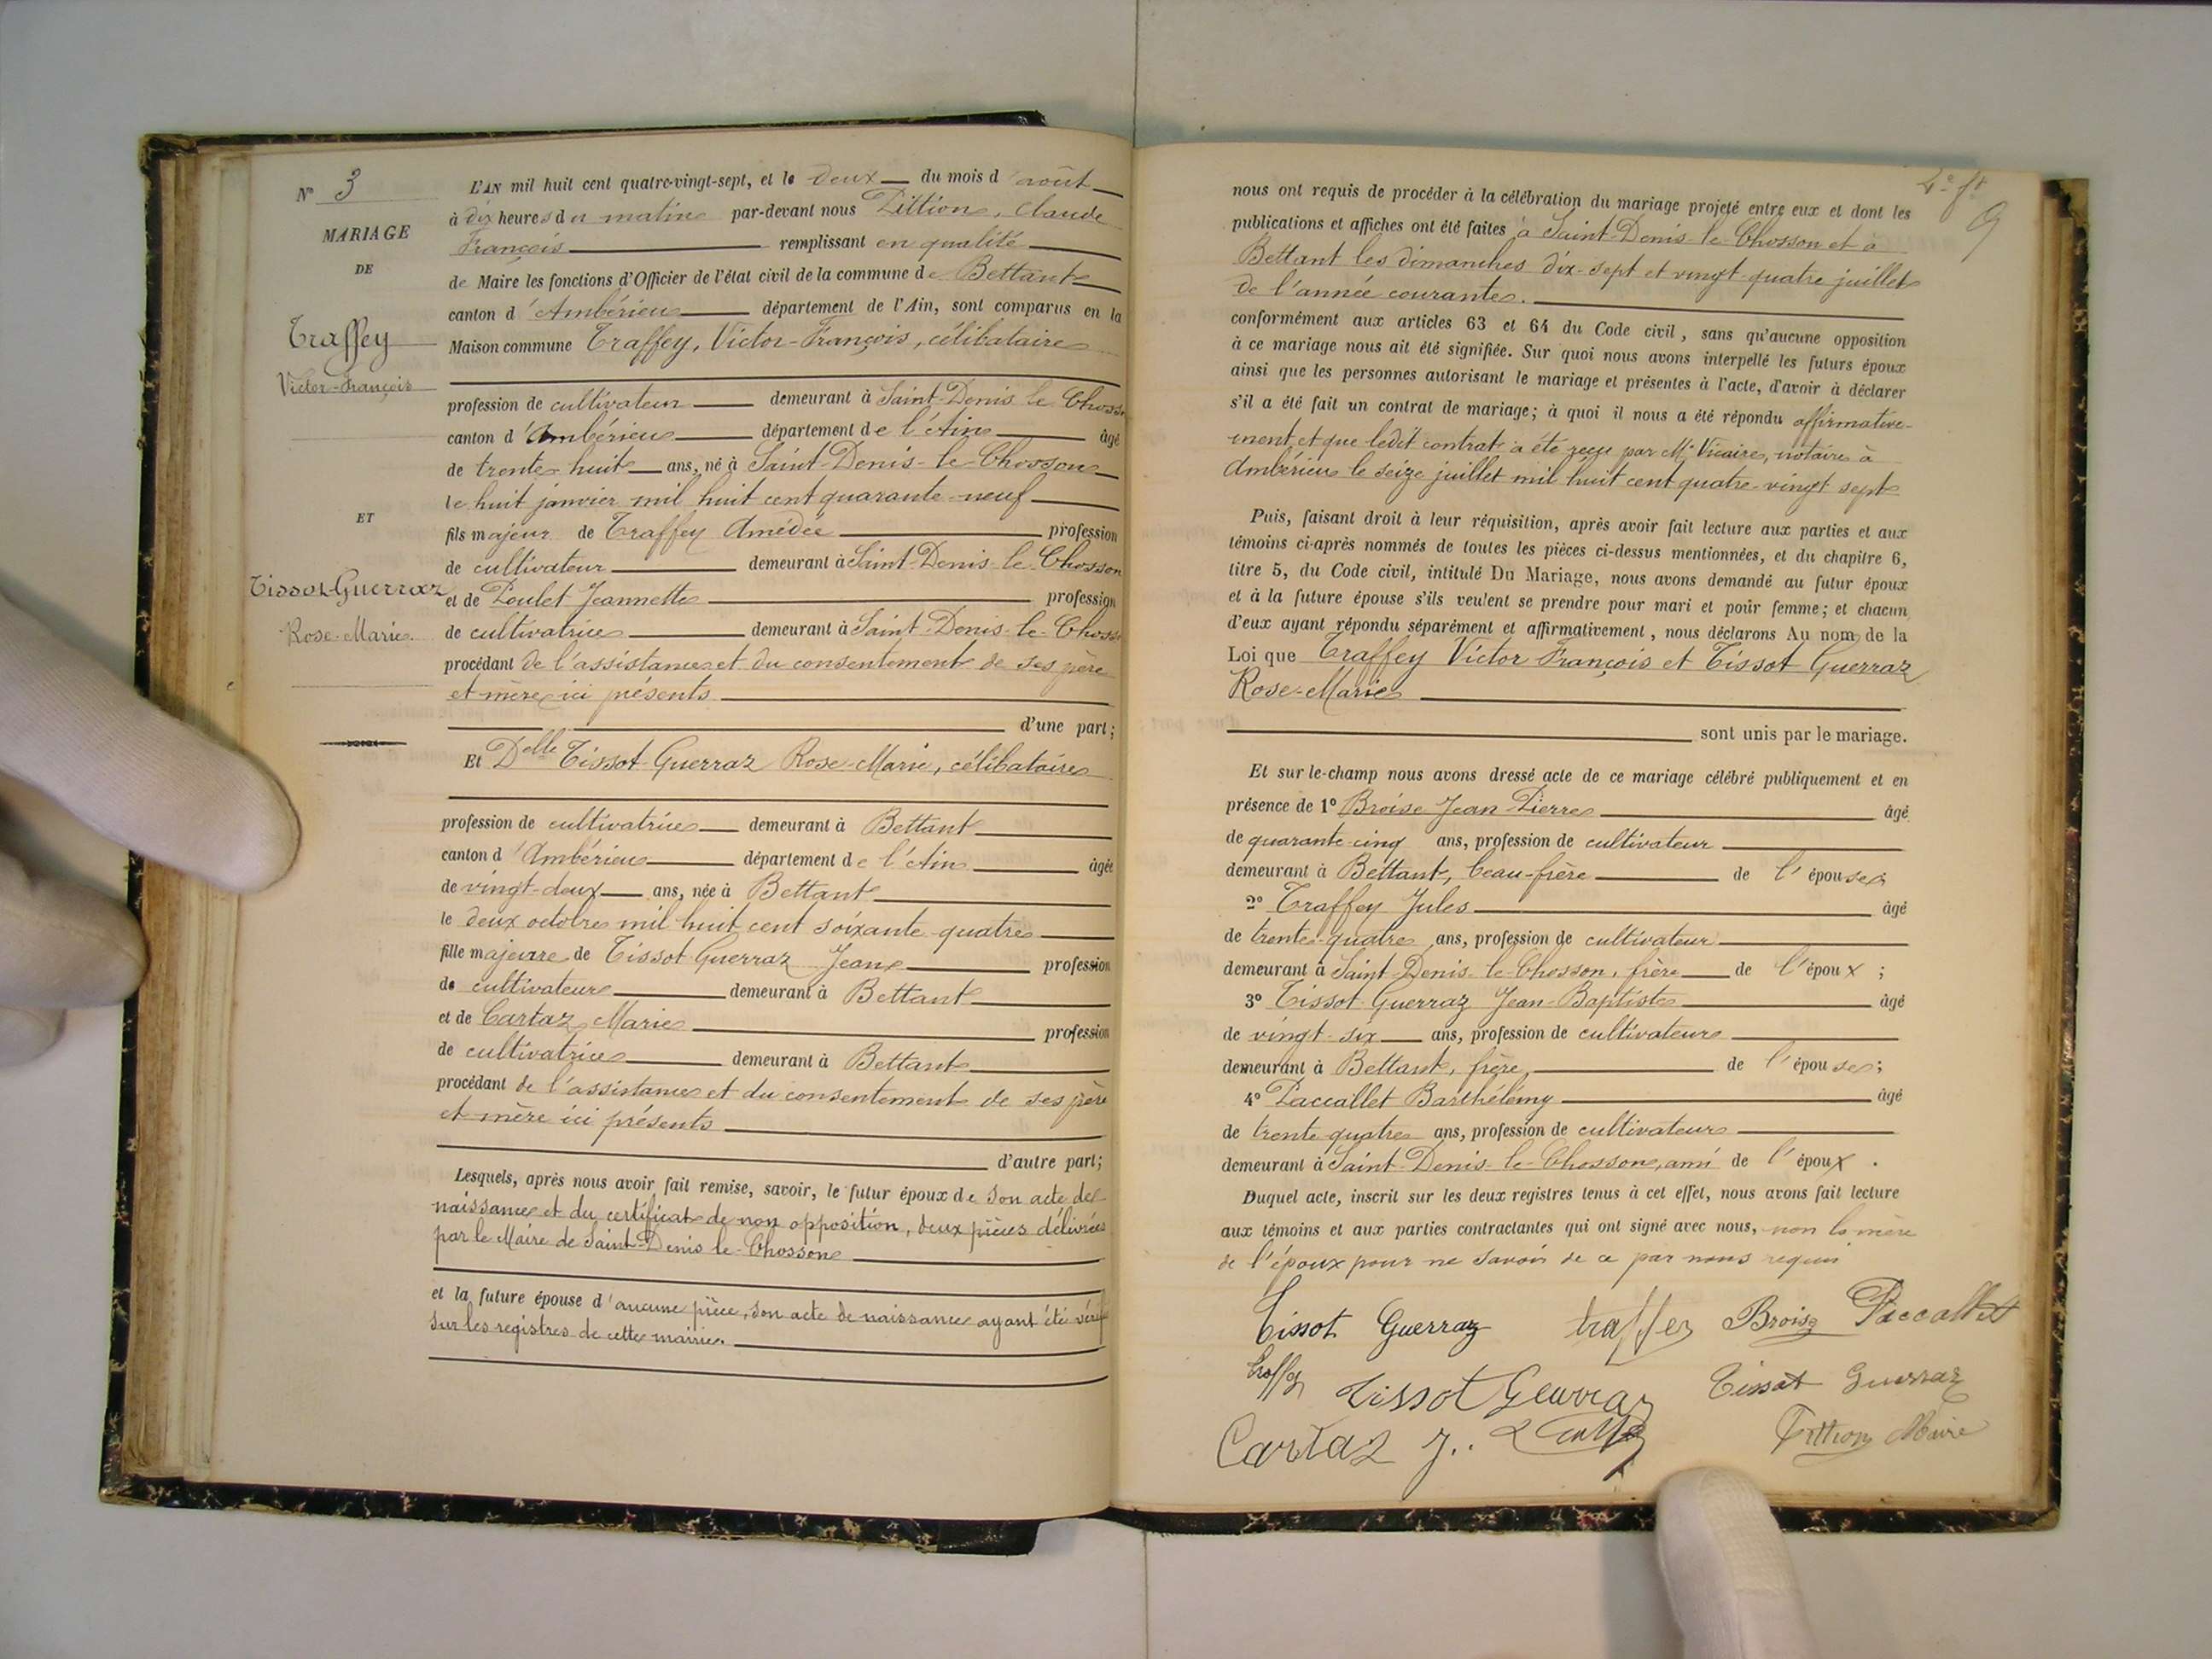 N° 3
MARIAGE
DE
Traffey
Victor-François
ET
Tissot-Guerraz
Rose-Marie
L'AN mil huit cent quatre-vingt-sept, et le deux du mois d'août
à dix heures du matin par-devant nous Pittion, Claude
François remplissant en qualité
de Maire les fonctions d'Officier de l'état civil de la commune de Bettant
canton d'Ambérieu département de l'Ain, sont comparus en la
Maison commune Traffey, Victor-François, célibataire
profession de cultivateur demeurant à Saint-Denis le Chosson
canton d'Ambérieu département de l'Ain âgé
de trente-huit ans, né à Saint-Denis-le-Chosson
le huit janvier mil huit cent quarante-neuf
fils majeur de Traffey Amédée profession
de cultivateur demeurant à Saint-Denis-le-Chosson
et de Poulet Jeannette profession
de cultivatrice demeurant à Saint-Denis-le-Chosson
procédant de l'assistance et du consentement de ses père
et mère ici présents
d'une part;
Et Delle Tissot-Guerraz Rose-Marie, célibataire
profession de cultivatrice demeurant à Bettant
canton d'Ambérieu département de l'Ain âgée
de vingt-deux ans, née à Bettant
le deux octobre mil huit cent soixante-quatre
fille majeure de Tissot Guerraz Jean profession
de cultivateur demeurant à Bettant
et de Cartaz Marie profession
de cultivatrice demeurant à Bettant
procédant de l'assistance et du consentement de ses père
et mère ici présents
d'autre part;
Lesquels, après nous avoir fait remise, savoir, le futur époux de son acte de
naissance et du certificat de non opposition, deux pièces délivrées
par le Maire de Saint-Denis-le-Chosson
et la future épouse d'aucune pièce, son acte de naissance ayant été vérifié
sur les registres de cette mairie.
9
nous ont requis de procéder à la célébration du mariage projeté entre eux et dont les
publications et affiches ont été faites à Saint-Denis-le-Chosson et à
Bettant les dimanches dix-sept et vingt-quatre juillet
de l'année courante.
conformément aux articles 63 et 64 du Code civil, sans qu'aucune opposition
à ce mariage nous ait été signifiée. Sur quoi nous avons interpellé les futurs époux
ainsi que les personnes autorisant le mariage et présentes à l'acte, d'avoir à déclarer
s'il a été fait un contrat de mariage; à quoi il nous a été répondu affirmative-
ment, et que ledit contrat a été reçu par Me Vicaire, notaire à
Ambérieu le seize juillet mil huit cent quatre-vingt sept
Puis, faisant droit à leur réquisition, après avoir fait lecture aux parties et aux
témoins ci-après nommés de toutes les pièces ci-dessus mentionnées, et du chapitre 6,
titre 5, du Code civil, intitulé Du Mariage, nous avons demandé au futur époux
et à la future épouse s'ils veulent se prendre pour mari et pour femme; et chacun
d'eux ayant répondu séparément et affirmativement, nous déclarons Au nom de la
Loi que Traffey Victor François et Tissot Guerraz
Rose-Marie
sont unis par le mariage.
Et sur-le-champ nous avons dressé acte de ce mariage célébré publiquement et en
présence de 1° Broise Jean Pierre âgé
de quarante-cinq ans, profession de cultivateur
demeurant à Bettant, beau-frère de l'épouse;
2° Traffey Jules âgé
de trente-quatre ans, profession de cultivateur
demeurant à Saint-Denis-le-Chosson, frère de l'époux;
3° Tissot-Guerraz Jean-Baptiste âgé
de vingt-six ans, profession de cultivateur
demeurant à Bettant, frère, de l'épouse;
4° Paccallet Barthélémy âgé
de trente-quatre ans, profession de cultivateur
demeurant à Saint-Denis-le-Chosson, ami de l'époux.
Duquel acte, inscrit sur les deux registres tenus à cet effet, nous avons fait lecture
aux témoins et aux parties contractantes qui ont signé avec nous, non la mère
de l'époux pour ne savoir de ce par nous requis
Tissot Guerraz traffey Broise Paccallet
Traffey Tissot Geurraz Tissot Guerraz
Cartaz J. Pittion Maire